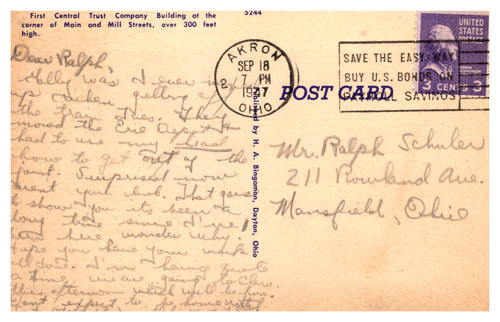 First Central Trust Company Building at the
corner of Main and Mill Streets, over 300 feet
high.
5244
AKRON
SEP 18
7 PM
1947
OHIO
2
SAVE THE EASY WAY
BUY U.S. BONDS ON
PAYROLL SAVINGS
UNITED STATES
POSTAGE
3 CENTS 3
POST CARD
Published by H. A. Bingaman, Dayton, Ohio
Dear Ralph,
Golly was I ever
up when getting off
the train Tues. They
moved the Erie Depot &
had to use my head
how to get out of the
joint. Surprised now
arent you bub. That goes
to show you its been a
long time since I
been here wonder why.
Hope you have your work
all done. I'm having quite
a time, we are going to Cleve.
this afternoon which will be fun.
Dont expect to be home until
Mr. Ralph Schuler
211 Rowland Ave.
Mansfield, Ohio